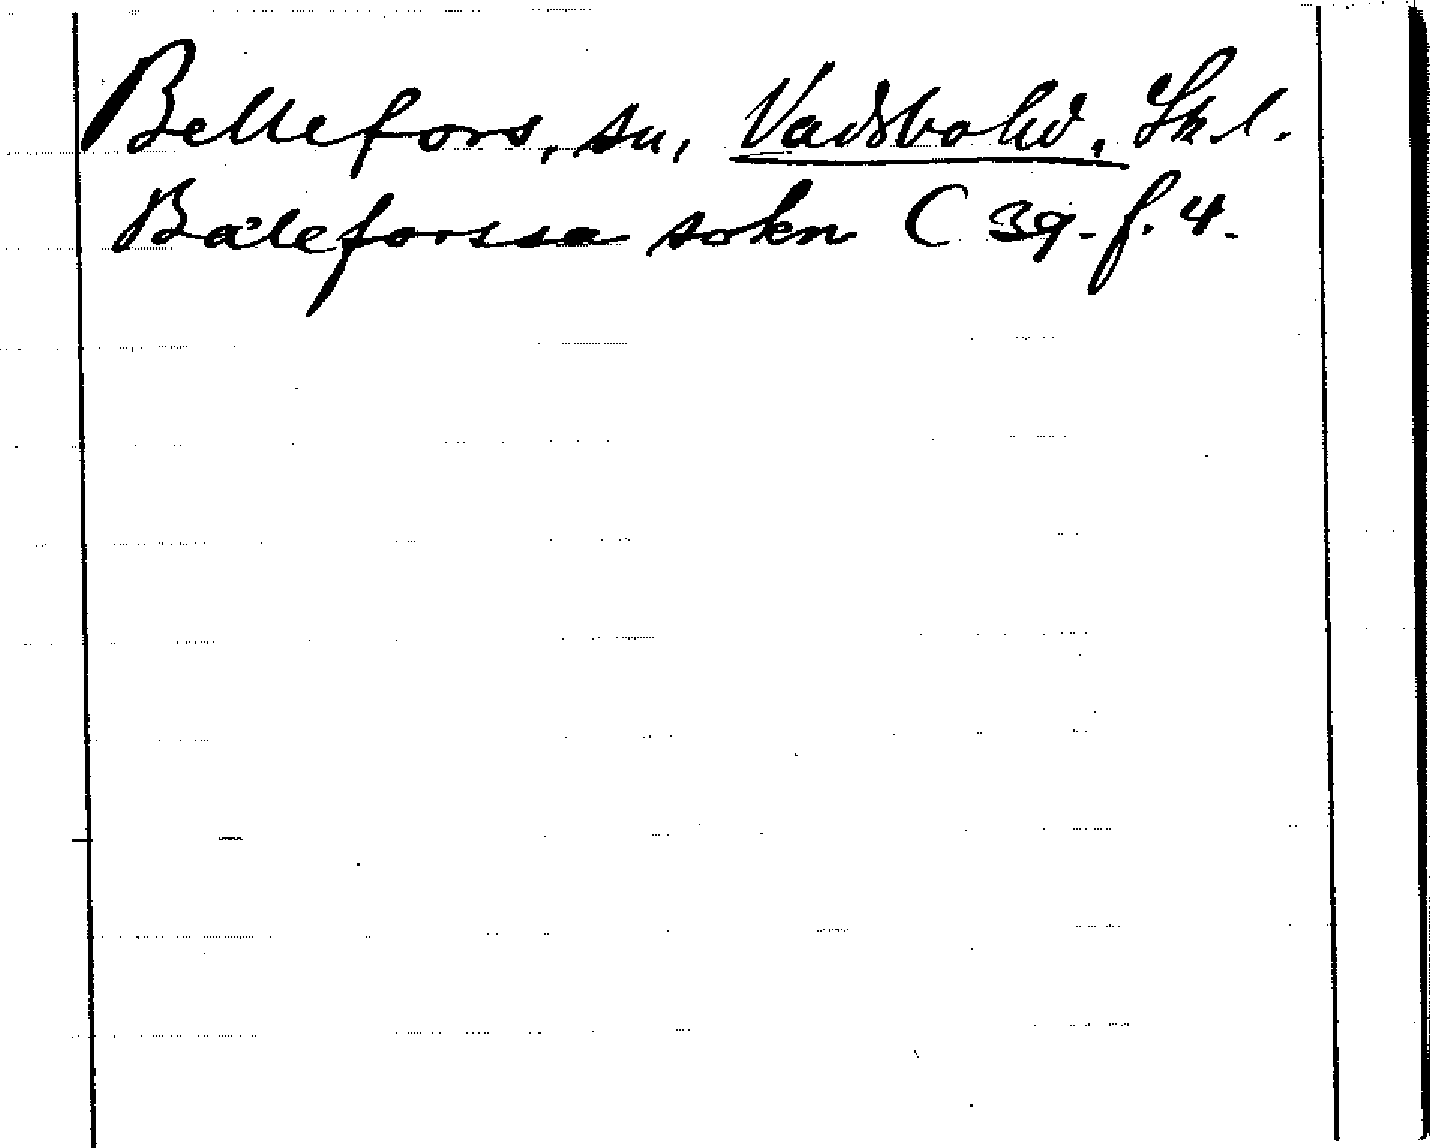 Bellefors, sn, Vadsbo hd, Sk. l.
Bäleforssa sokn C 39. f. 4.